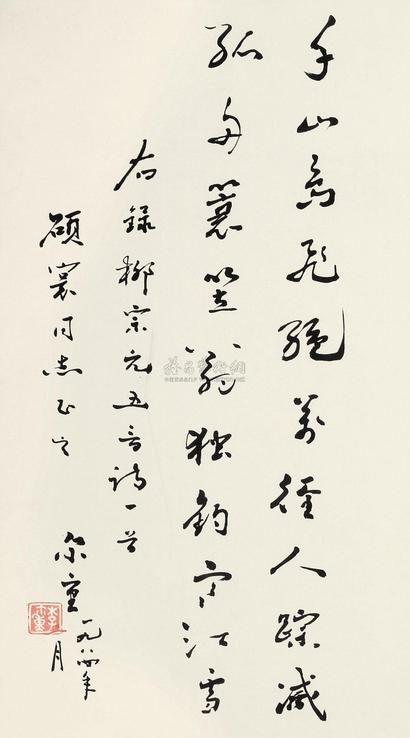 千山鸟飞绝万径人踪灭
孤舟蓑笠翁独钓寒江雪
右录柳宗元五言诗一首
硕裳同志正之
尔重一九八四年
一月
李尔重